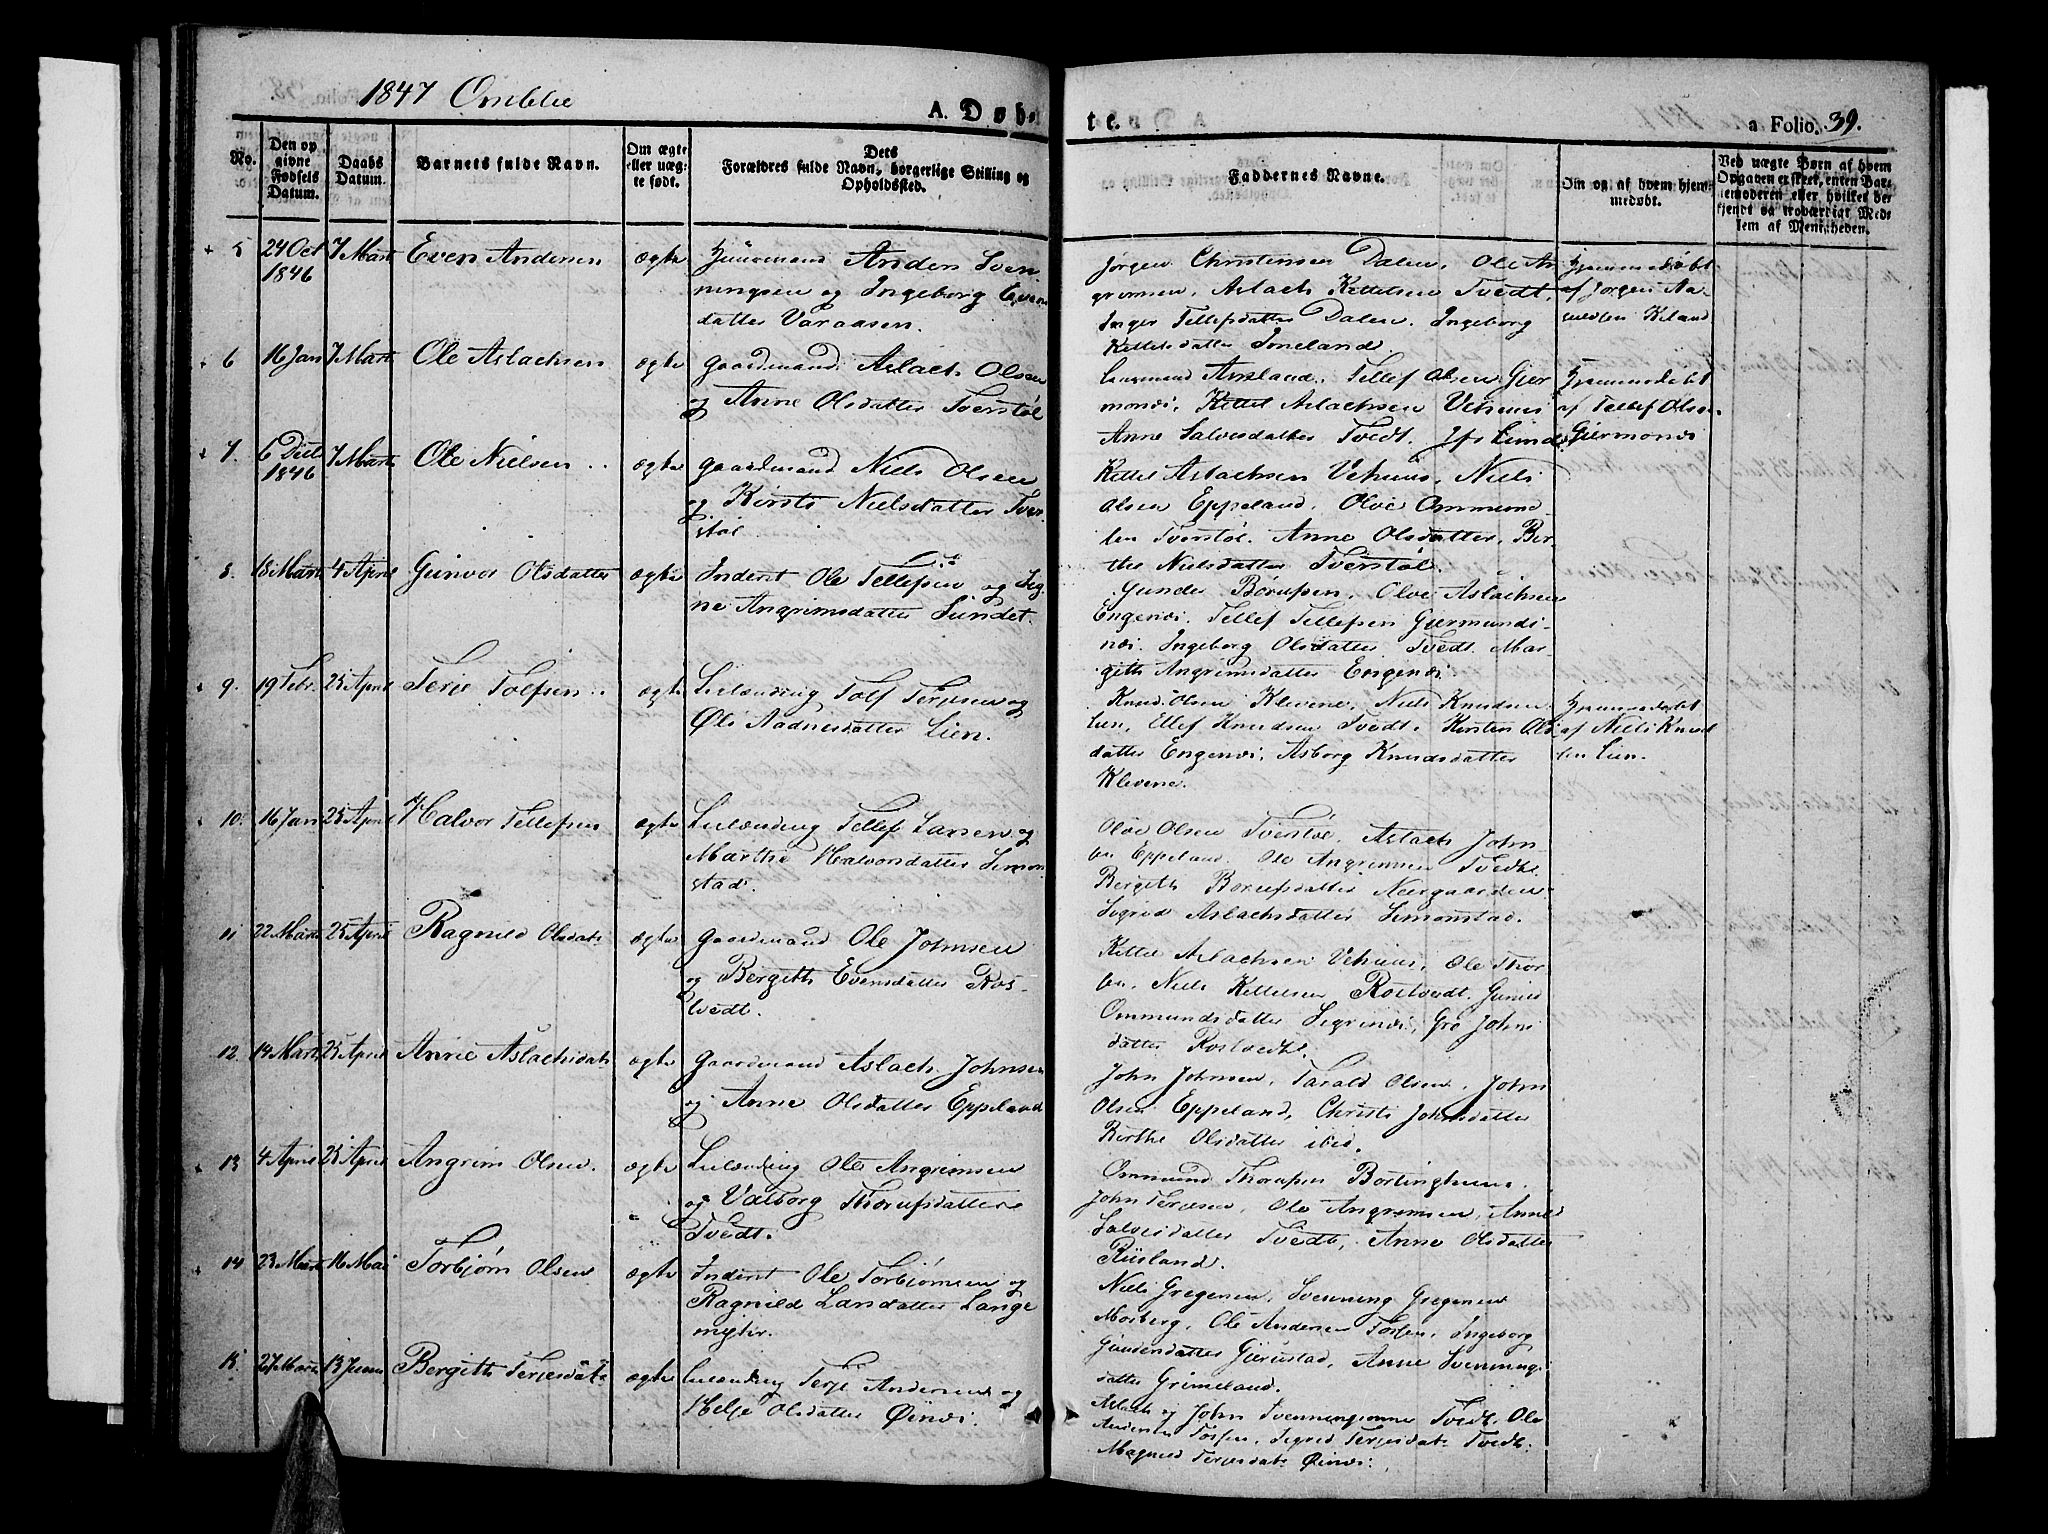 1847 Omblie
A. Døbte.
a Folio. 39.
No.
Den opgivne Fødsels Datum.
Daabs Datum.
Barnets fulde Navn.
Om ægte eller uægte født.
Dets Forældres fulde Navn, borgerlige Stilling og Opholdssted.
Faddernes Navne.
Om og af hvem hjemmedøbt.
Ved uægte Børn af hvem Opgaven er skeet, enten Barnemoderen eller hvilket bekjendt og troværdigt Medlem af Menigheden.
5 24 Oct 1846 7 Marts Even Andersen ægte Huusmand Anders Sven
ningsen og Ingeborg Evens
datter Varaasen.
Jørgen Christensen Dalen. Ole An
grimsen, Aslach Kettelsen Tvedt.
Inger Tellefsdatter Dalen. Ingeborg
Kettelsdatter Joneland.
Hjemmedøbt
af Jørgen Aa
medsen Kiland
6 16 Jan 7 Marts Ole Aslachsen ægte Gaardmand Aslach Olsen
og Anne Olsdatter Tverstøl
Lensmand Amland. Tellef Olsen Gjer
monnæs, Kettel Aslachsen Vehuus
Anne Salvesdatter Tvedt.
Hjemmedøbt
af Tellef Olsen
Gjermonnæs
7. 6 Dec 1846 7 Marts Ole Nielsen ægte Gaardmand Niels Olsen
og Kirste Nielsdatter Tver
støl.
Kettel Aslachsen Vehuus, Niels
Olsen Eppeland, Olve Ommund
sen Tverstøl. Anne Olsdatter. Ber
the Nielsdatter Tverstøl.
8. 18 Marts 4 April Gunvor Olsdatter ægte Inderst Ole Tellefsen og Sig
ne Angrimsdatter Sundet.
Gunder Børufsen, Olve Aslachsen
Engenæs. Tellef Tellefsen Gjermunds
næs. Ingeborg Olsdatter Tvedt. Mar
gith Angrimsdatter Engenæs
9. 19 Febr. 25 April Terje Tolfsen ægte Leilænding Tolf Terjesen og
Øli Aadnesdatter Lien.
Knud Olsen Klevene, Niels Knudsen
Lien, Ellef Knudsen Tvedt. Kirsten Ols
datter Engenæs, Asborg Knudsdatter
Klevene.
Hjemmedøbt
af Niels Knud
sen Lien.
10. 16 Jan 25 April Halvor Tellefsen ægte Leilænding Tellef Larsen og
Marthe Halvorsdatter Simon
stad.
Olve Olsen Tverstøl, Aslach John
sen Eppeland. Ole Angrimsen Tvedt
Bergith Borufsdatter Neergaarden
Sigrid Aslachsdatter Simonstad.
11 22 Marts 25 April Ragnild Olsdatr ægte Gaardmand Ole Johnsen
og Bergith Evensdatter Ros
tvedt.
Kettel Aslachsen Vehuus, Ole Thor
sen. Niels Kettelsen Rostvedt.
Ommundsdatter Gro Johns
datter Rostvedt.
12. 14 Marts 25 April Anne Aslachsdatr ægte Gaardmand Aslach Johnsen
og Anne Olsdatter Eppeland
John Johnsen, Tarald Olsen, John
Olsen Eppeland, Christi Johnsdatter
Berthe Olsdatter ibid.
13 4 April 25 April Angrim Olsen. ægte Leilænding Ole Angrimsen
og Valborg Thorufsdatter
Tvedt.
Ommund Thorufsen
John Terjesen, Ole Angrimsen, Anne
Salvesdatter Tvedt, Anne Olsdatter
Riisland.
14 23 Marts 16 Mai Torbjørn Olsen ægte Inderst Ole Torbjørnsen og
Ragnild Larsdatter Lange
myhr.
Niels Gregersen, Svenning Gregersen
Mosberg, Ole Andersen Tosfen, Ingeborg
Gundersdatter Gjerustad, Anne Svennings
datter Grimeland.
15. 27 Marts 13 Juni Bergith Terjesdatr ægte Leilænding Terje Andersen og
Helje Olsdatter Øinæs.
Aslach og John Svenningsønner Tvedt, Ole
Andersen Tosfen, Sigrid Terjesdatr Tvedt.
Magnild Terjesdatr Øinæs.